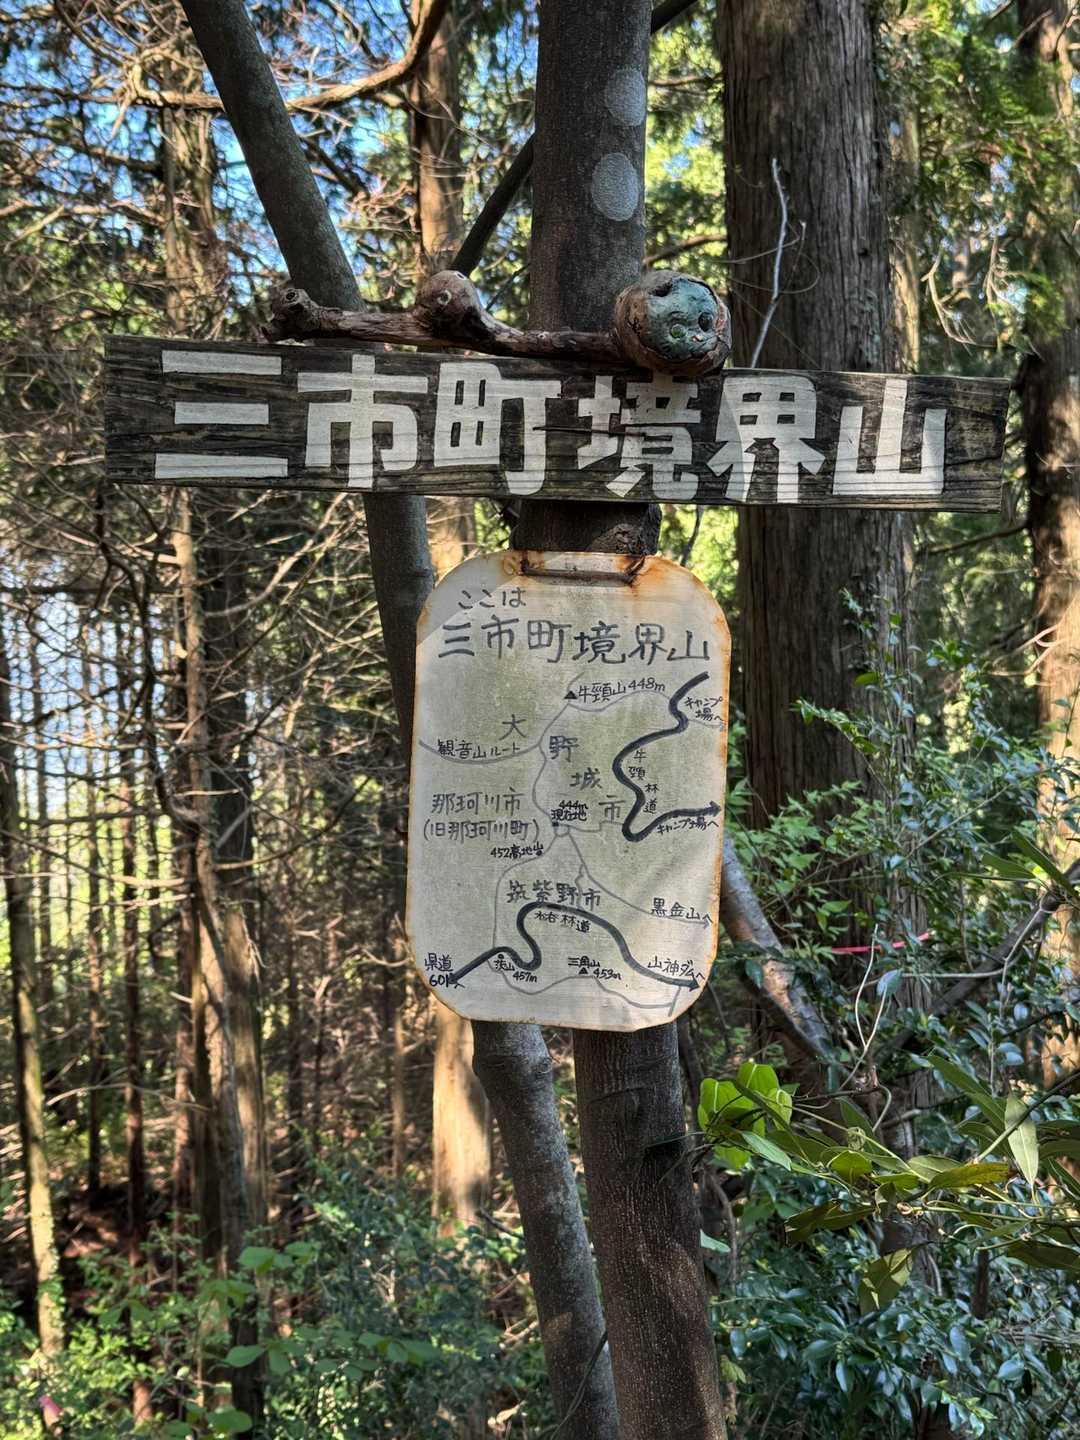 三市町境界山
ここは
三市町境界山
▲牛頸山448m
キャンプ
場へ
大
野
城
市
観音山ルート
牛
頸
林
道
那珂川市
(旧那珂川町)
444m
現在地
キャンプ場へ
452高地
筑紫野市
黒金山へ
林道
県道
601
457m
三角山
▲453m
山神ダムへ